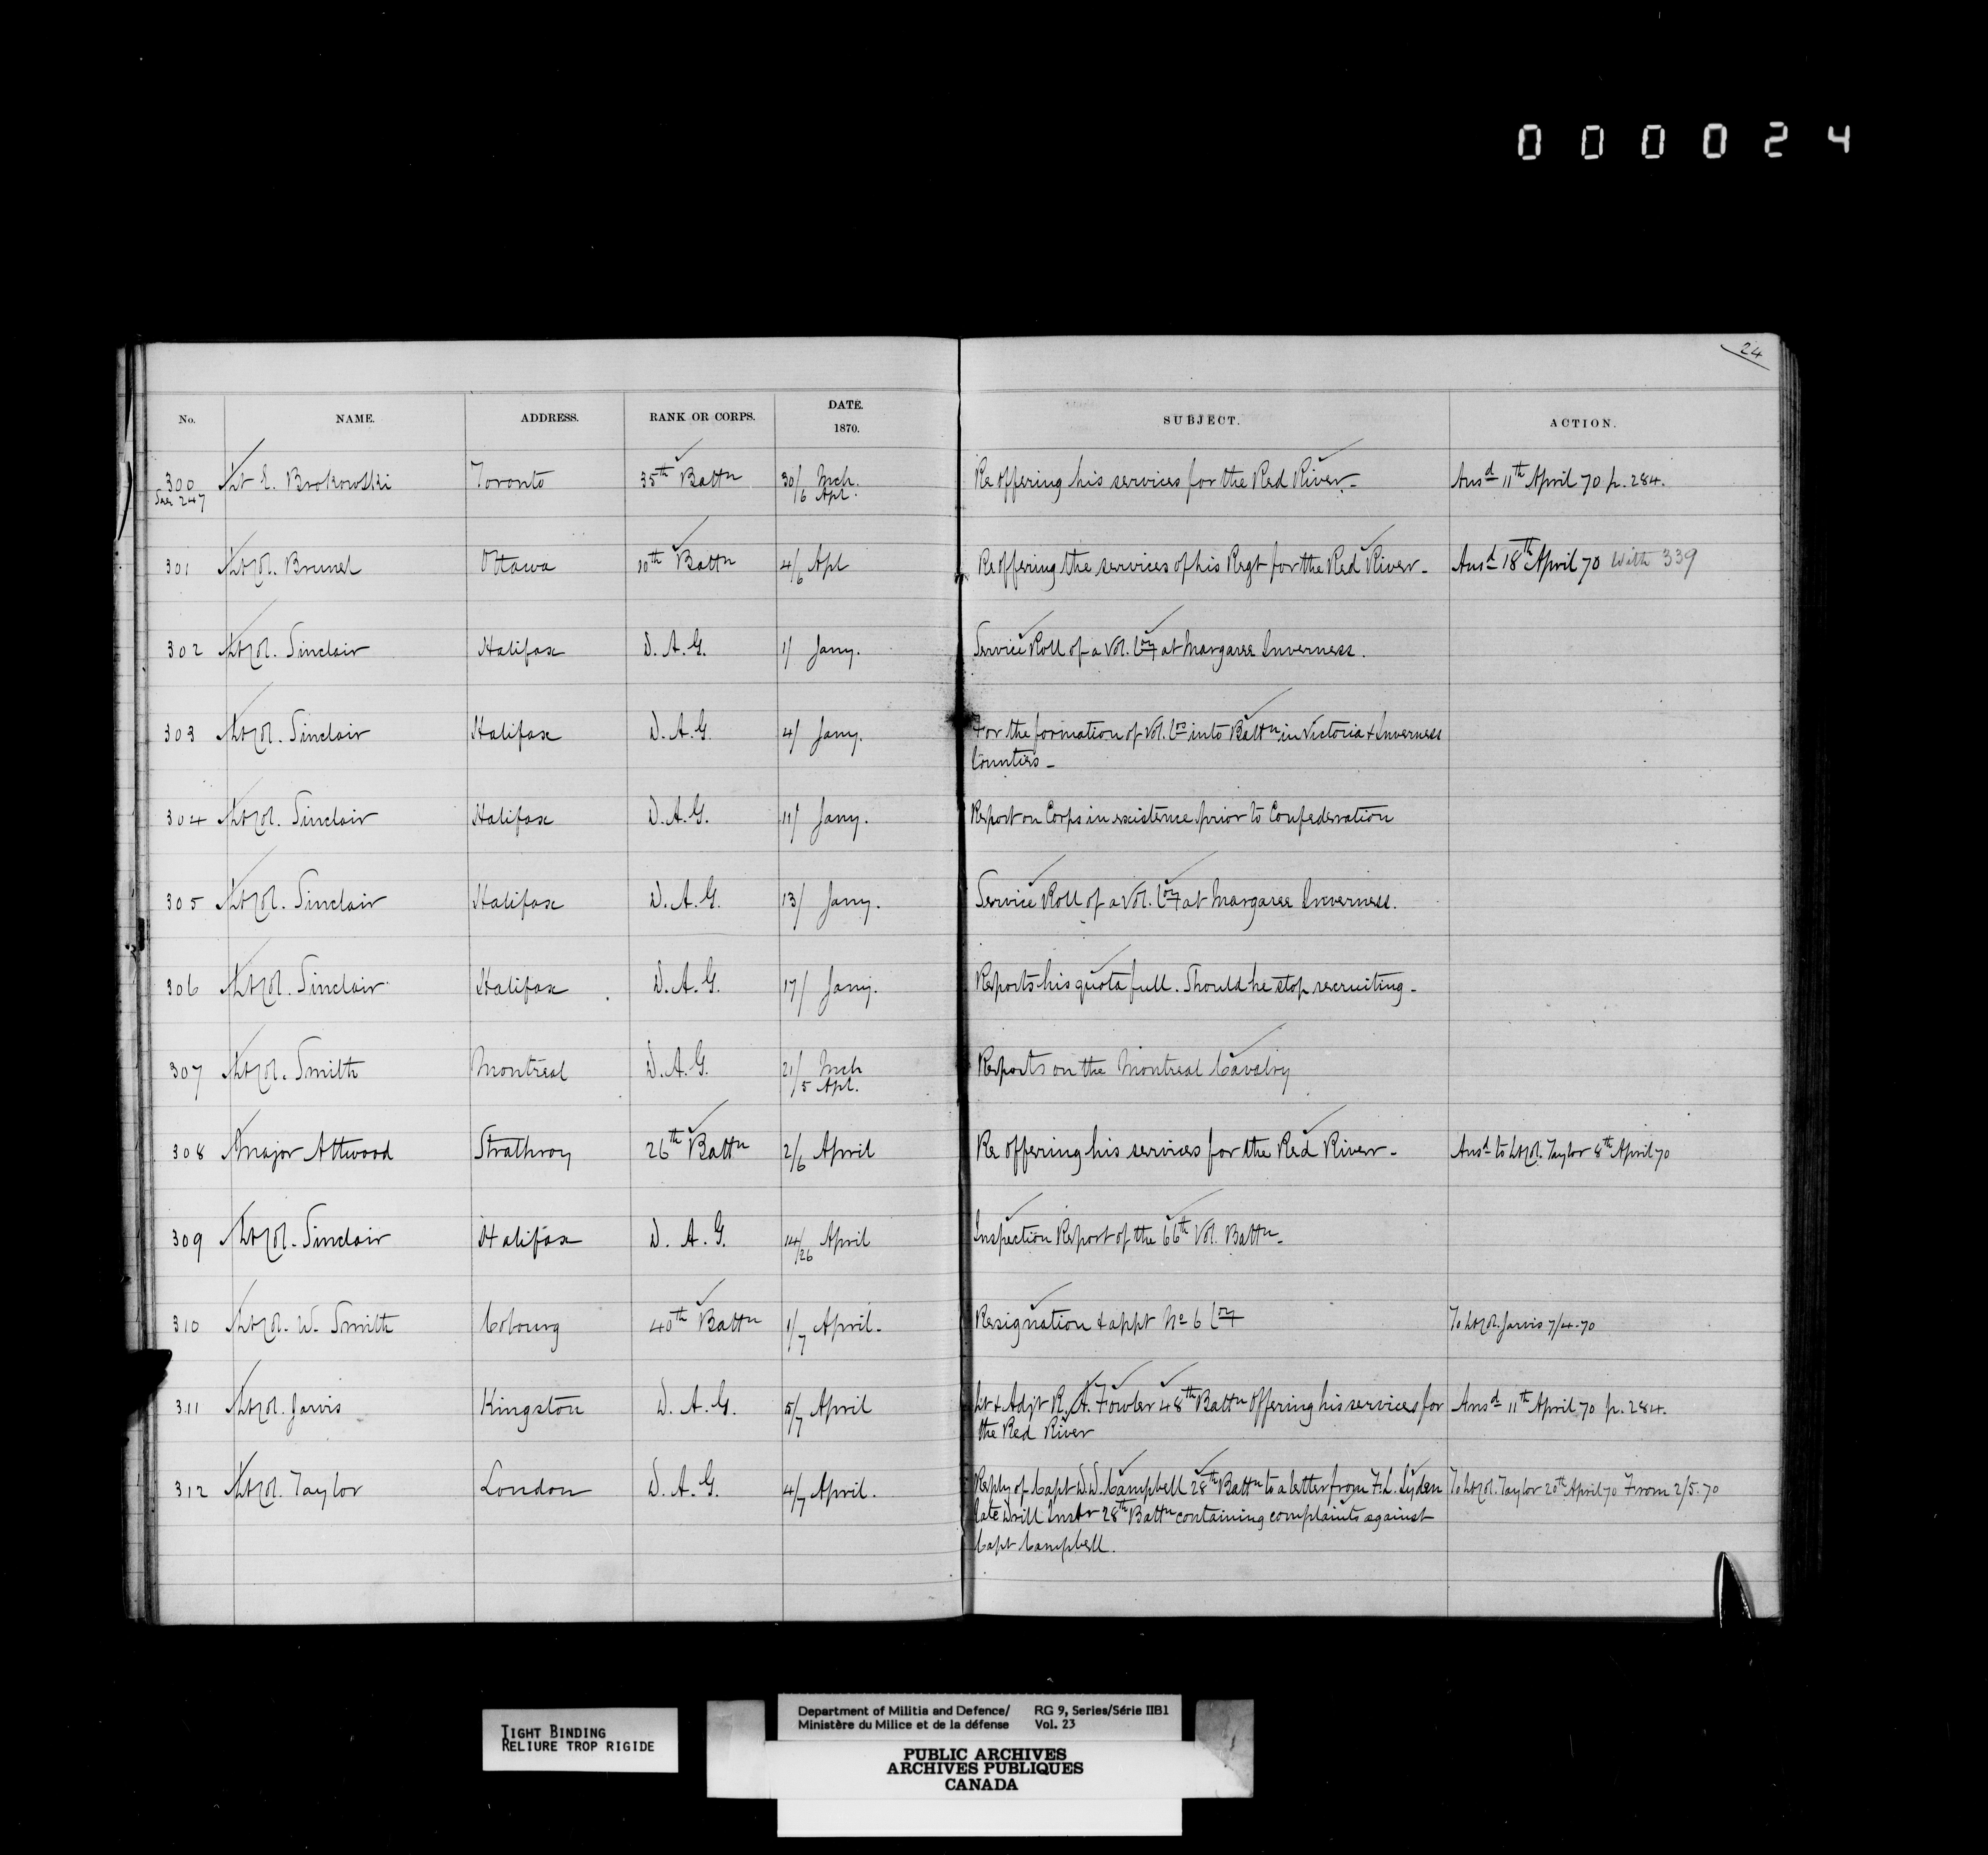 000024
24
No. NAME. ADDRESS. RANK OR CORPS. DATE. 1870. SUBJECT. ACTION.
300 Lt E. Brokowski Toronto 35th Battn 30/ Mch. Re offering his services for the Red River - Ansd 11th April 70 p. 284.
See 247 /6 Apl.
301 Lt Col. Brunel Ottawa 10th Battn 4/6 Apl Re offering the services of his Regt for the Red River - Ansd 18th April 70 with 339
302 Lt Col. Sinclair Halifax D. A. G. 1/ Jany. Service Roll of a Vol. Coy at Margaree Inverness.
303 Lt Col. Sinclair Halifax D. A. G. 4/ Jany. For the formation of Vol. Cos into Battn in Victoria & Inverness
Counties -
304 Lt Col. Sinclair Halifax D. A. G. 11/ Jany. Report on Corps in existence prior to Confederation
305 Lt Col. Sinclair Halifax D. A. G. 13/ Jany. Service Roll of a Vol. Coy at Margaree Inverness.
306 Lt Col. Sinclair Halifax D. A. G. 17/ Jany. Reports his quota full. Should he stop recruiting -
307 Lt Col. Smith Montreal D. A. G. 21/ Mch Reports on the Montreal Cavalry
/5 Apl.
308 Major Attwood Strathroy 26th Battn 2/6 April Re offering his services for the Red River - Ansd to Lt Col. Taylor 8th April 70
309 Lt Col. Sinclair Halifax D. A. G. 14/26 April Inspection Report of the 66th Vol. Battn -
310 Lt Col. W. Smith Cobourg 40th Battn 1/7 April - Resignation & appt No 6 Coy To Lt Col. Jarvis 7/4-70
311 Lt Col. Jarvis Kingston D. A. G. 5/7 April Lt & Adjt R. A. Fowler 48th Battn offering his services for Ansd 11th April 70 p. 284.
the Red River
312 Lt Col. Taylor London D. A. G. 4/7 April. Reply of Capt D. D. Campbell 28th Battn to a letter from F. L. To Lt Col. Taylor 20th April 70 From 2/5. 70
late Drill Instr 28th Battn containing complaints against
Capt Campbell.
TIGHT BINDING
RELIURE TROP RIGIDE
Department of Militia and Defence/ RG 9, Series/Série IIB1
Ministère du Milice et de la défense Vol. 23
PUBLIC ARCHIVES
ARCHIVES PUBLIQUES
CANADA